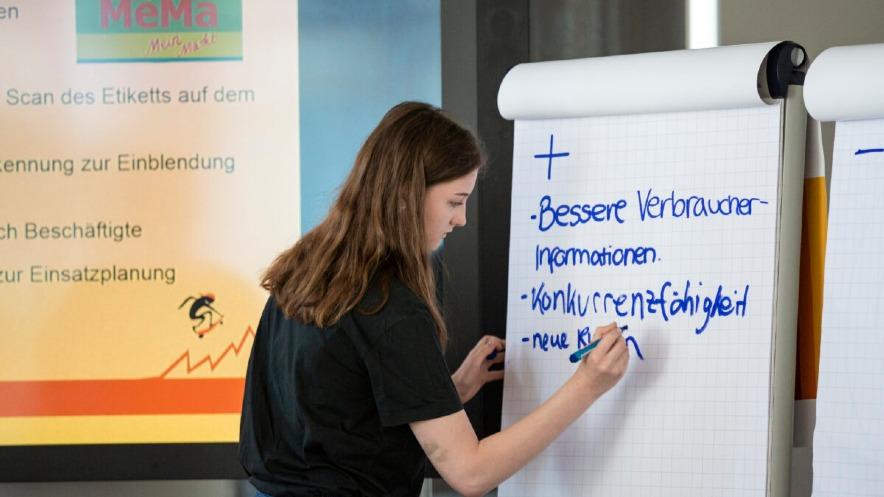 en
MeMa
Mein Markt
Scan des Etiketts auf dem
kennung zur Einblendung
ch Beschäftigte
zur Einsatzplanung
+
- Bessere Verbraucher-
Informationen.
- Konkurrenzfähigkeit
- neue
-